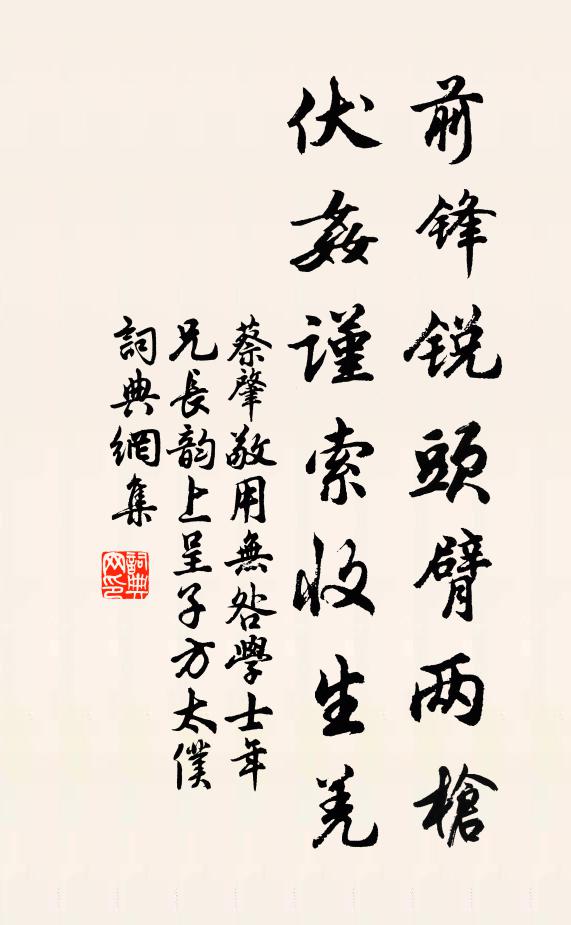 前鋒銳頭臂两槍
伏姦謹索收生羌
蔡肇敬用無咎學士年
兄長韵上呈子方太僕
詞典網集
詞典网印